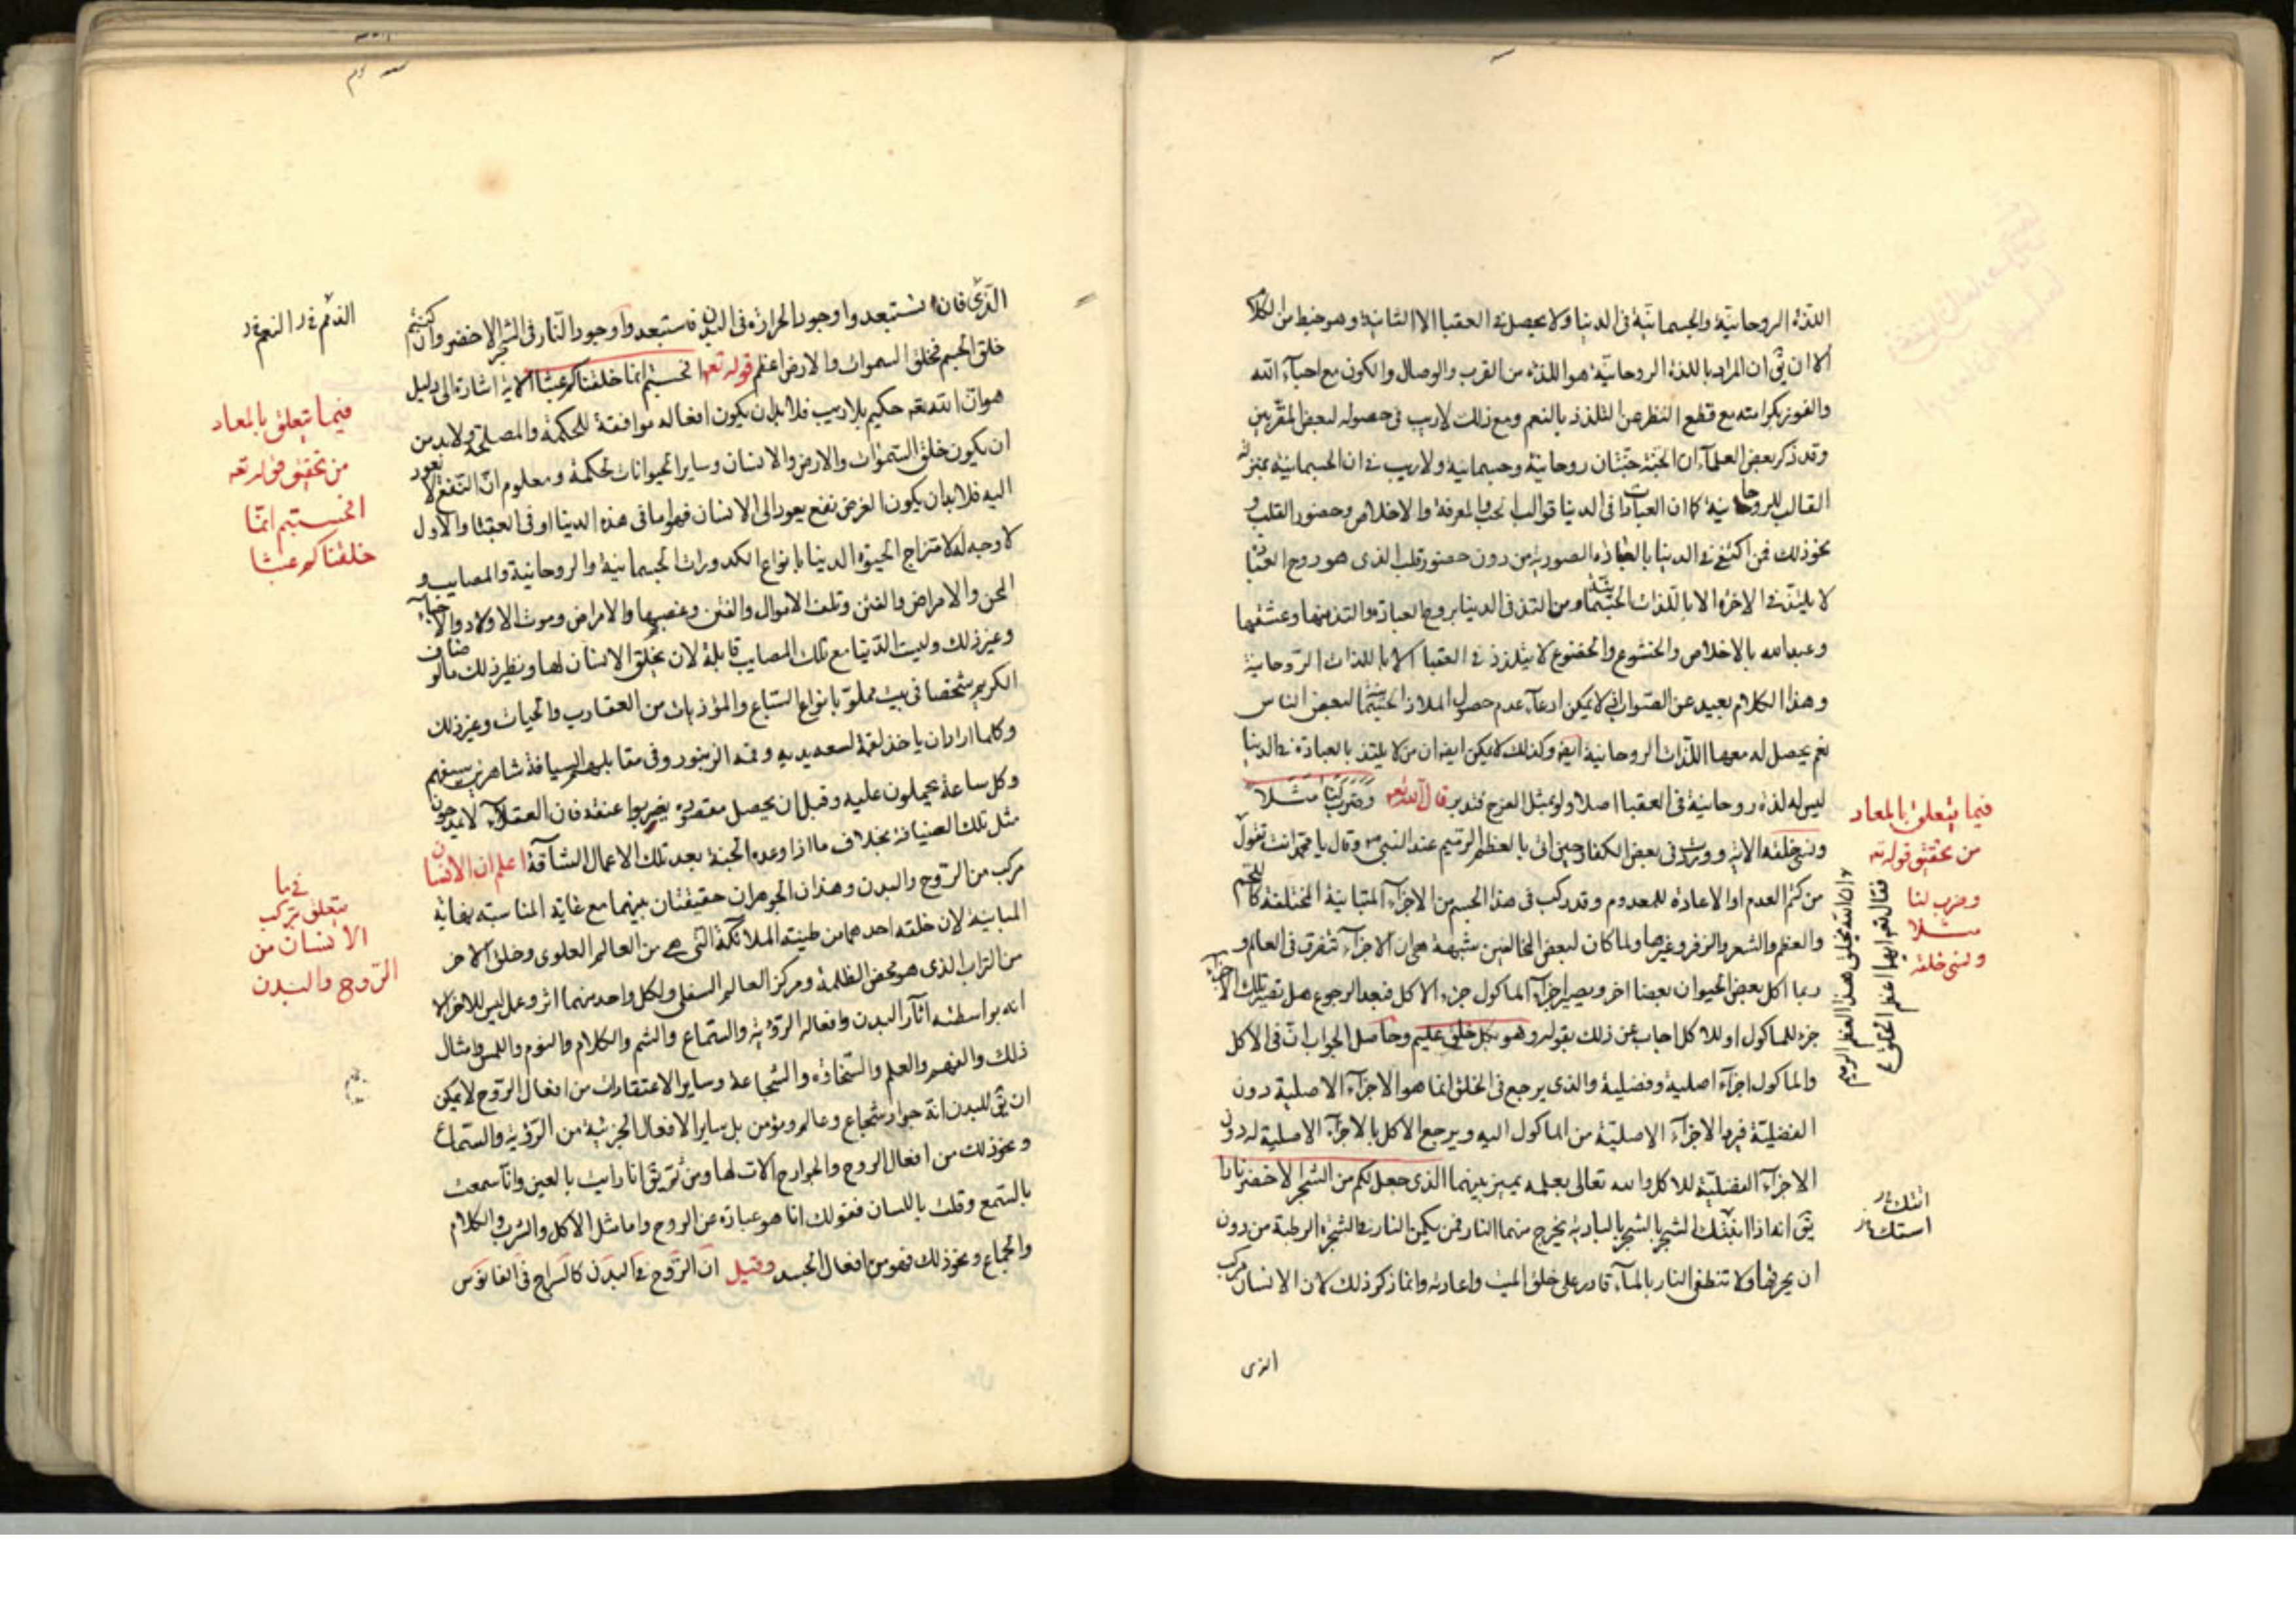 اللذة الروحانية والجسمانية فى الدنيا ولا يحصل فى العقبا الا الثانية وهو خبط من الكلام
الا ان يق ان المراد باللذة الروحانية هو اللذة من القرب والوصال والكون مع احباء الله
والفوز بكرامته مع قطع النظر عن التلذذ بالنعم ومع ذلك لاريب فى حصوله لبعض المقربين
وقد ذكر بعض العلماء ان الجنة جنتان روحانية وجسمانية ولا ريب فى ان الجسمانية بمنزلة
القالب للروحانية كما ان العبادات فى الدنيا قوالب الحب والمعرفة والاخلاص وحضور القلب و
نحو ذلك فمن اكتفى فى الدنيا بالعبادة الصورية من دون حضور قلب الذى هو روح العبادة
لا يلتذ فى الاخرة الا باللذات الجسمانية ومن التذ فى الدنيا بروح العبادة والتذ منها وعشقها
وعبد الله بالاخلاص والخشوع والخضوع لا يتلذذ فى العقبا الا باللذات الروحانية
وهذا الكلام بعيد عن الصواب اذ لا يمكن ادعاء عدم حصول الملاذ الجسمانية لبعض الناس
نعم يحصل له معها اللذات الروحانية ايضا وكذلك لا يمكن ايضا ان من لا يلتذ بالعبادة فى الدنيا
ليس له لذة روحانية فى العقبا اصلا ولو بمثل الفرح فتدبر قال الله تعه وضرب لنا مثلا
ونسى خلقه الاية وورد فى بعض الكفار حين اتى بالعظم الرميم عند النبى ص وقال يا محمد انت تقول
من كتم العدم او الاعادة للمعدوم وقد ركب فى هذا الجسم من الاجزاء المتباينة المختلفة كاللحم
والعظم والشعر والزفر وغيرها ولما كان لبعض المخالفين شبهة هى ان الاجزاء تتفرق فى العالم و
ربما اكل بعض الحيوان بعضا اخر ويصير اجزاء الماكول جزء الاكل فبعد الرجوع هل تصير تلك الاجزاء
جزء للماكول او للاكل اجاب عن ذلك بقوله وهو بكل خلق عليم وحاصل الجواب ان فى الاكل
والماكول اجزاء اصلية وفضلية والذى يرجع فى الخلق انما هو الاجزاء الاصلية دون
الفضلية فيرد الاجزاء الاصلية من الماكول اليه ويرجع الاكل بالاجزاء الاصلية له دون
الاجزاء الفضلية للاكل والله تعالى بعلمه يميز بينهما الذى جعل لكم من الشجر الاخضر نارا
يق انه اذا الشجر بالشجر يخرج منهما النار فمن يكمن النار فى الشجرة الرطبة من دون
ان يحرقها ولا تنطفى النار بالماء قادر على خلق الميت واعادته وانما ذكر ذلك لان الانسان مركب
الذى
فيما يتعلق بالمعاد
من تحقيق قوله تعه
وضرب لنا
مثلا
ونسى خلقه
الذى فان استبعدوا وجود الحرارة فى البدن فاستبعدوا وجود النار فى الشجر الاخضر وان كنتم
خلق الجسم فخلق السموات والارض اعظم قوله تعه افحسبتم انما خلقناكم عبثا الاية اشارة الى دليل
هو ان الله تعه حكيم بلا ريب فلا بد ان يكون افعاله موافقة للحكمة والمصلحة ولا بد من
ان يكون خلق السموات والارض والانسان وساير الحيوانات لحكمة ومعلوم ان النفع لا يعود
اليه فلا بد ان يكون الغرض نفع يعود الى الانسان فهو اما فى هذه الدنيا او فى العقبا والاول
لا وجه له لامتزاج الحيوة الدنيا بانواع الكدورات الجسمانية والروحانية والمصايب و
المحن والامراض والفتن وتلف الاموال والفتن وغصبها والامراض وموت الاولاد والاحباء
وغير ذلك وليت الدنيا مع تلك المصايب قابلة لان يخلق الانسان لها ونظير ذلك ما لو اضاف
الكريم شخصا فى بيت مملو بانواع السباع والمؤذيات من العقارب والحيات وغير ذلك
وكلما اراد ان ياخذ لقمة لسعه يديه وفمه الزنبور وفى مقابلهم السيافة شاهرين سيوفهم
وكل ساعة يحملون عليه وقبل ان يحصل مقصوده يضربوا عنقه فان العقلاء لا يمدحون
مثل تلك الضيافة بخلاف ما اذا وعده الجنة بعد تلك الاعمال الشاقة اعلم ان الانسان
مركب من الروح والبدن وهذان الجوهران حقيقتان بينهما مع غاية المناسبة نهاية
المباينة لان خلقة احدهما من طينته الملائكة التى هى من العالم العلوى وخلق الاخر
من التراب الذى هو محض الظلمة ومركز العالم السفلى ولكل واحد منهما اثر وعمل ليس للاخر الا
انه بواسطته آثار البدن وافعاله الرؤية والسماع والشم والكلام والنوم واللمس وامثال
ذلك والفهم والعلم والسخاوة والشجاعة وساير الاعتقادات من افعال الروح لا يمكن
ان يق للبدن انه جواد وشجاع وعالم ومؤمن بل ساير الافعال الجزئية من الرؤية والسماع
ونحو ذلك من افعال الروح والجوارح الات لها ومن ثم يق انا رايت بالعين وانا سمعت
بالسمع وقلت باللسان فقولك انا هو عبارة عن الروح واما مثل الاكل والشرب والكلام
والجماع ونحو ذلك فهو من افعال الجسد وقيل ان الروح فى البدن كالسراج فى الفانوس
فيما يتعلق بالمعاد
من تحقيق قوله تعه
افحسبتم انما
خلقناكم عبثا
فيما
يتعلق بتركب
الانسان من
الروح والبدن